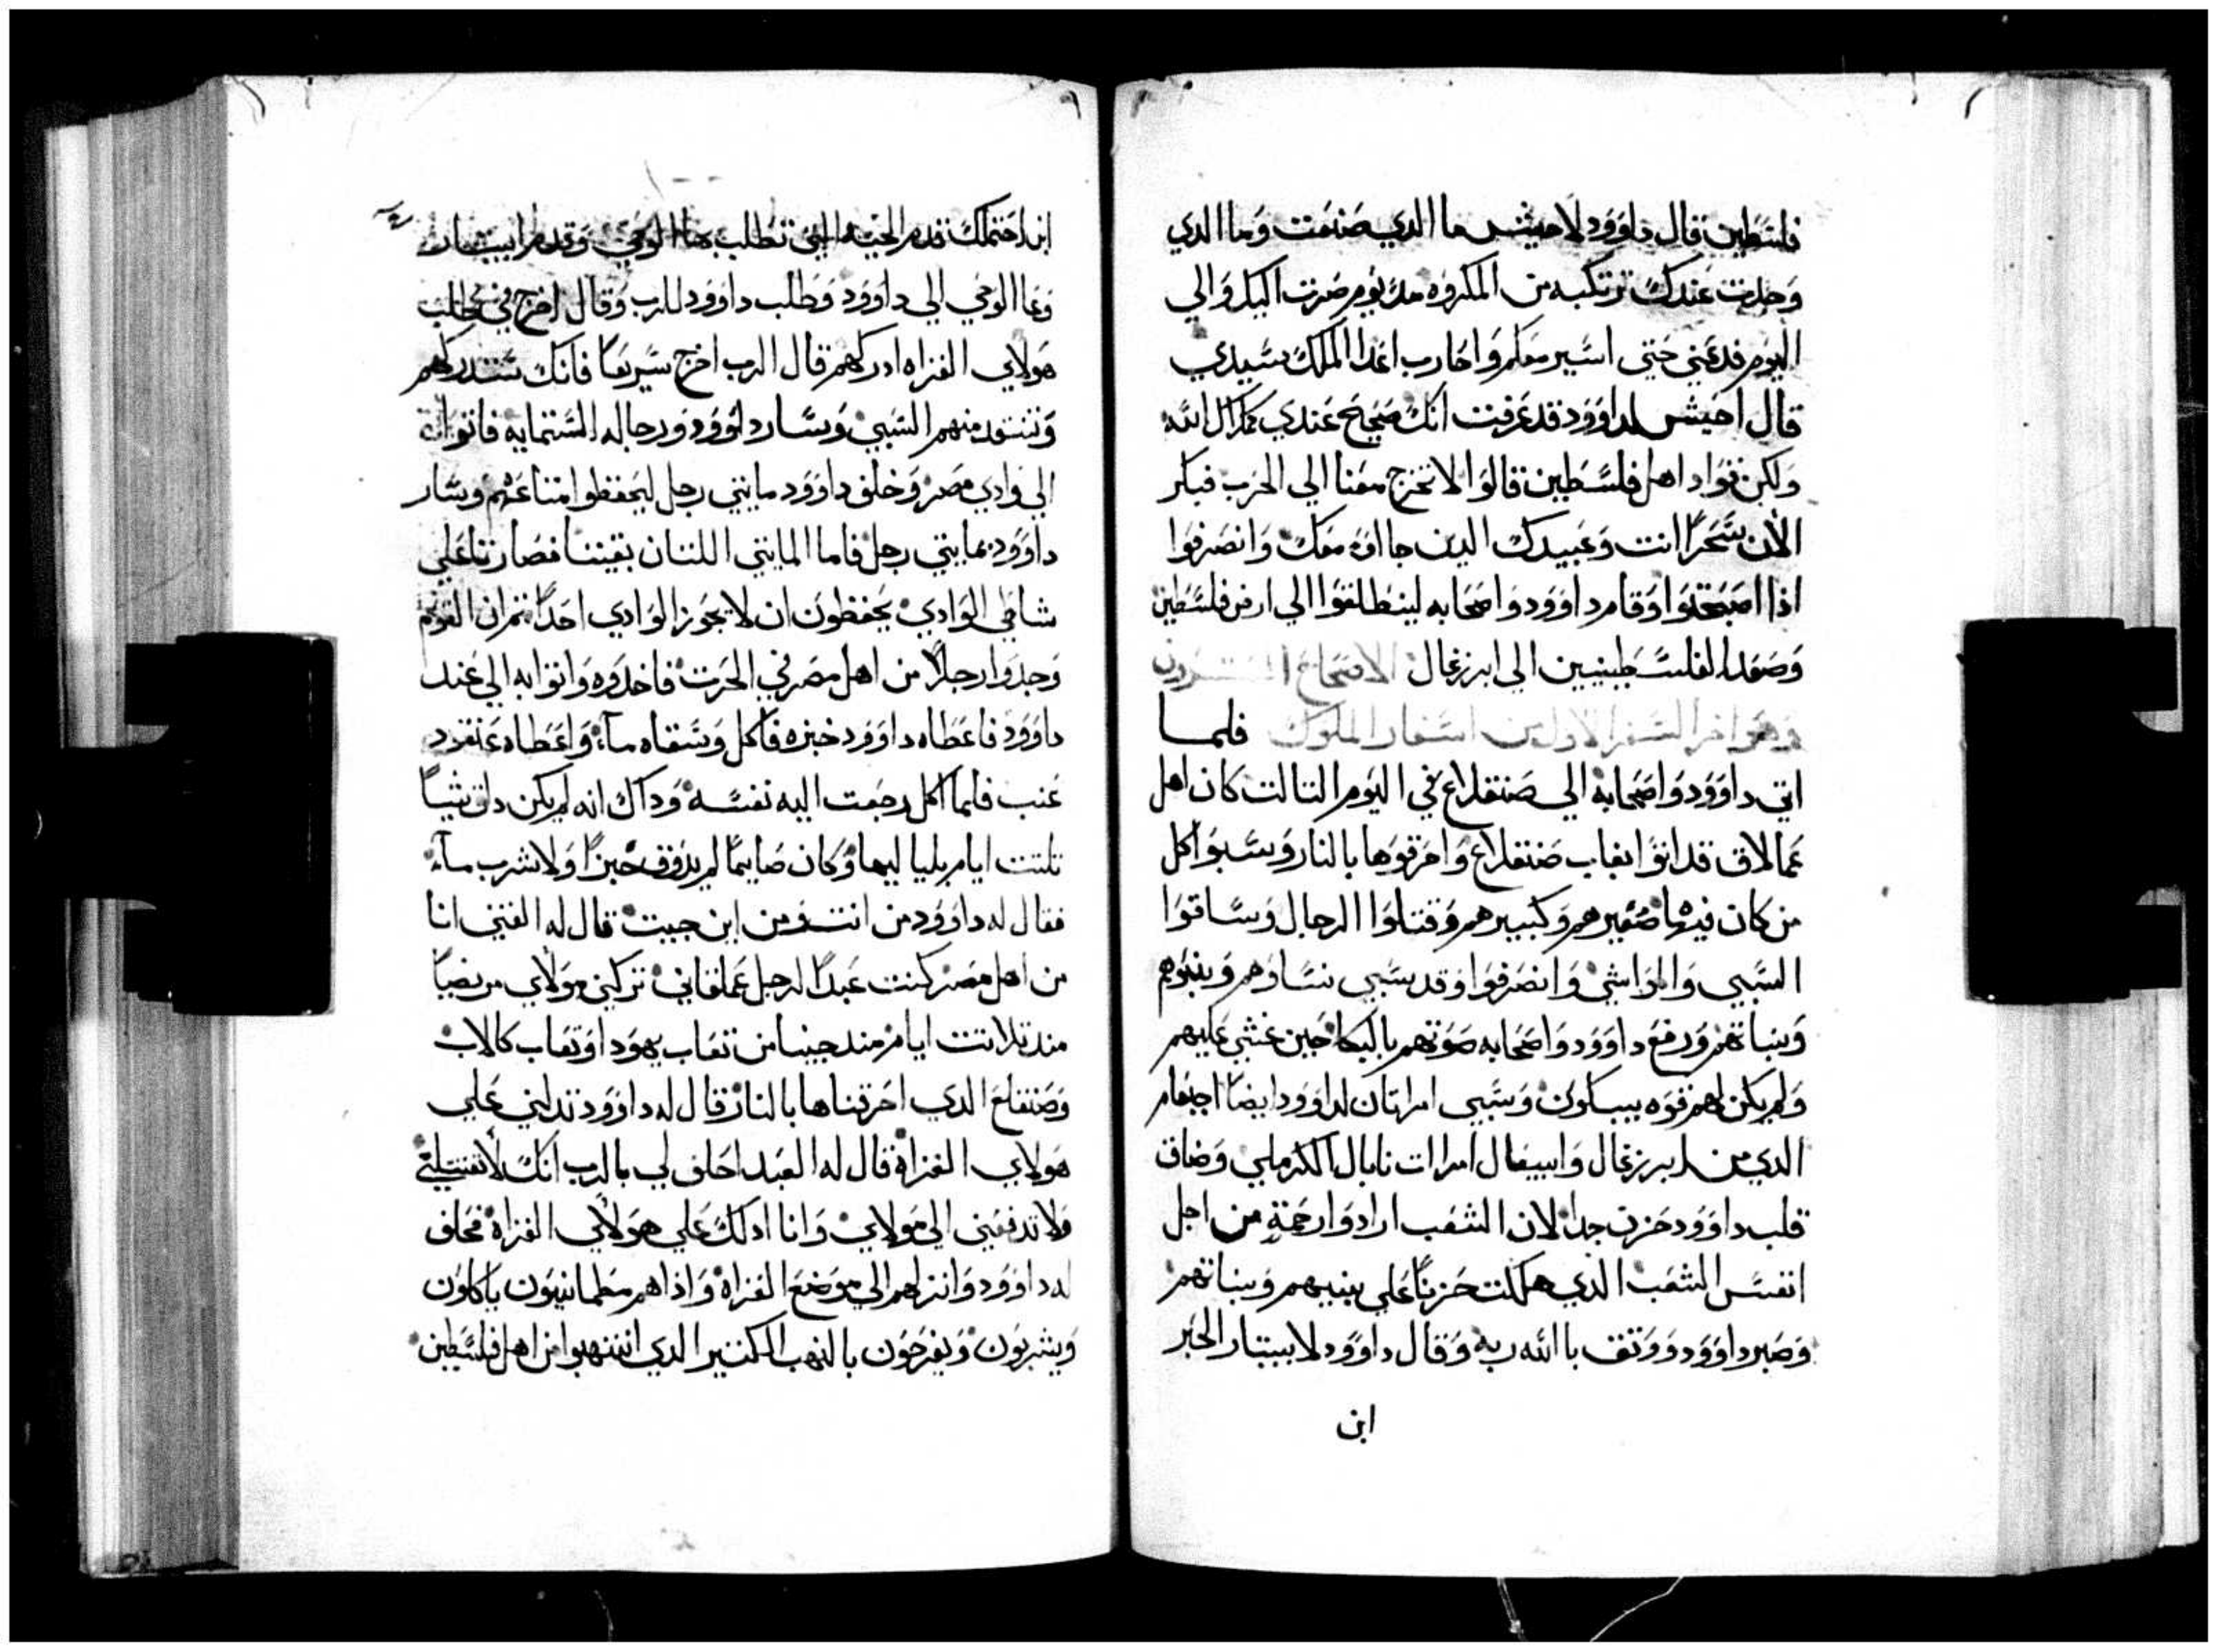 فلسطين قال داوود لاحيش ما الدي صنعت وما الدي
وجدت عندك ترتكبه من المكروه مند يوم صرت اليك والي
اليوم فدعني حتي اسير معكم واحارب اعدا الملك سيدي
قال احيش لداوود قد عرفت انك صحيح عندي كملاك الله
ولكن قواد اهل فلسطين قالوا لا تخرج معنا الي الحرب فبكر
الان سحرا انت وعبيدك الدين جااوه معك وانصرفوا
اذا اصبحتوا وقام داوود واصحابه لينطلقوا الي ارض فلسطين
وصعد الفلسطينيين الي ايرزعال الاصحاح العشرون
وهو اخر السفر الاول من اسفار الملوك فلما
اتي داوود واصحابه الي صنقلاع في اليوم التالت كان اهل
عمالاق قد اتوا نقاب صنقلاع واحرقوها بالنار وسبوا كل
من كان فيها صغيرهم وكبيرهم وقتلوا الرجال وساقوا
السبي والمواشي وانصرفوا وقد سبي نساوهم وبنيهم
وبناتهم ورفع داوود واصحابه صوتهم بالبكا حين غشي عليهم
ولم يكن لهم قوه يبكون وسبي امراتان لداوود ايضا احنعام
الدي من ايرزعال وابيغال امرات نابال الكرملي وضاق
قلب داوود حزن جدا لان الشعب ارادوا رحمة من اجل
انفس الشعب الدي هلكت حزنا علي بنيهم وبناتهم
وصبر داوود ووتق باالله ربه وقال داوود لابيتار الحبر
ابن
ابن احتملك قدم الجبه التي تطلب بها الوحي وقدم ابيتار
وعا الوحي الي داوود وطلب داوود للرب وقال اخرج في طلب
هولاي الغزاه ادركهم قال الرب اخرج سريعا فانك ستدركهم
وتنتقد منهم السبي وسار داوود ورجاله الستمايه فاتوا
الي وادي مصر وخلف داوود مايتي رجل ليحفظوا امتاعهم وسار
داوود بمايتي رجل فاما المايتي اللتان بقيتنا فصارتا علي
شاطي الوادي يحفظون ان لا يجوز الوادي احدا تمران القوم
وجدوا رجلا من اهل مصر في الحرت فاخدوه واتوا به الي عند
داوود فاعطاه داوود خبزه فاكل وسقاه مآء واعطاه عنقود
عنب فلما اكل رجعت اليه نفسه وداك انه لم يكن داق شيا
تلتت ايام بليا ليها وكان صايما لم يدوق خبزا ولا شرب مآء
فقال له داوود من انت ومن اين جيت قال له الفتي انا
من اهل مصر كنت عبدا لرجل عملقاني تركني مولاي مريضا
مند تلاتت ايام مند جينا من نقاب يهودا ونقاب كالاب
وصنقلع الدي احرقناها بالنار قال له داوود تدلني علي
هولاي الغزاة قال له العبد احلف لي بالرب انك لا تقتلني
ولا تدفعني الي مولاي وانا ادلك علي هولاي الغزاة فحلف
له داوود وانزلهم الي موضع الغزاة واذا هم مطمانيون ياكلون
ويشربون ويفرحون بالنهب الكتير الدي انتهبوا من اهل فلسطين